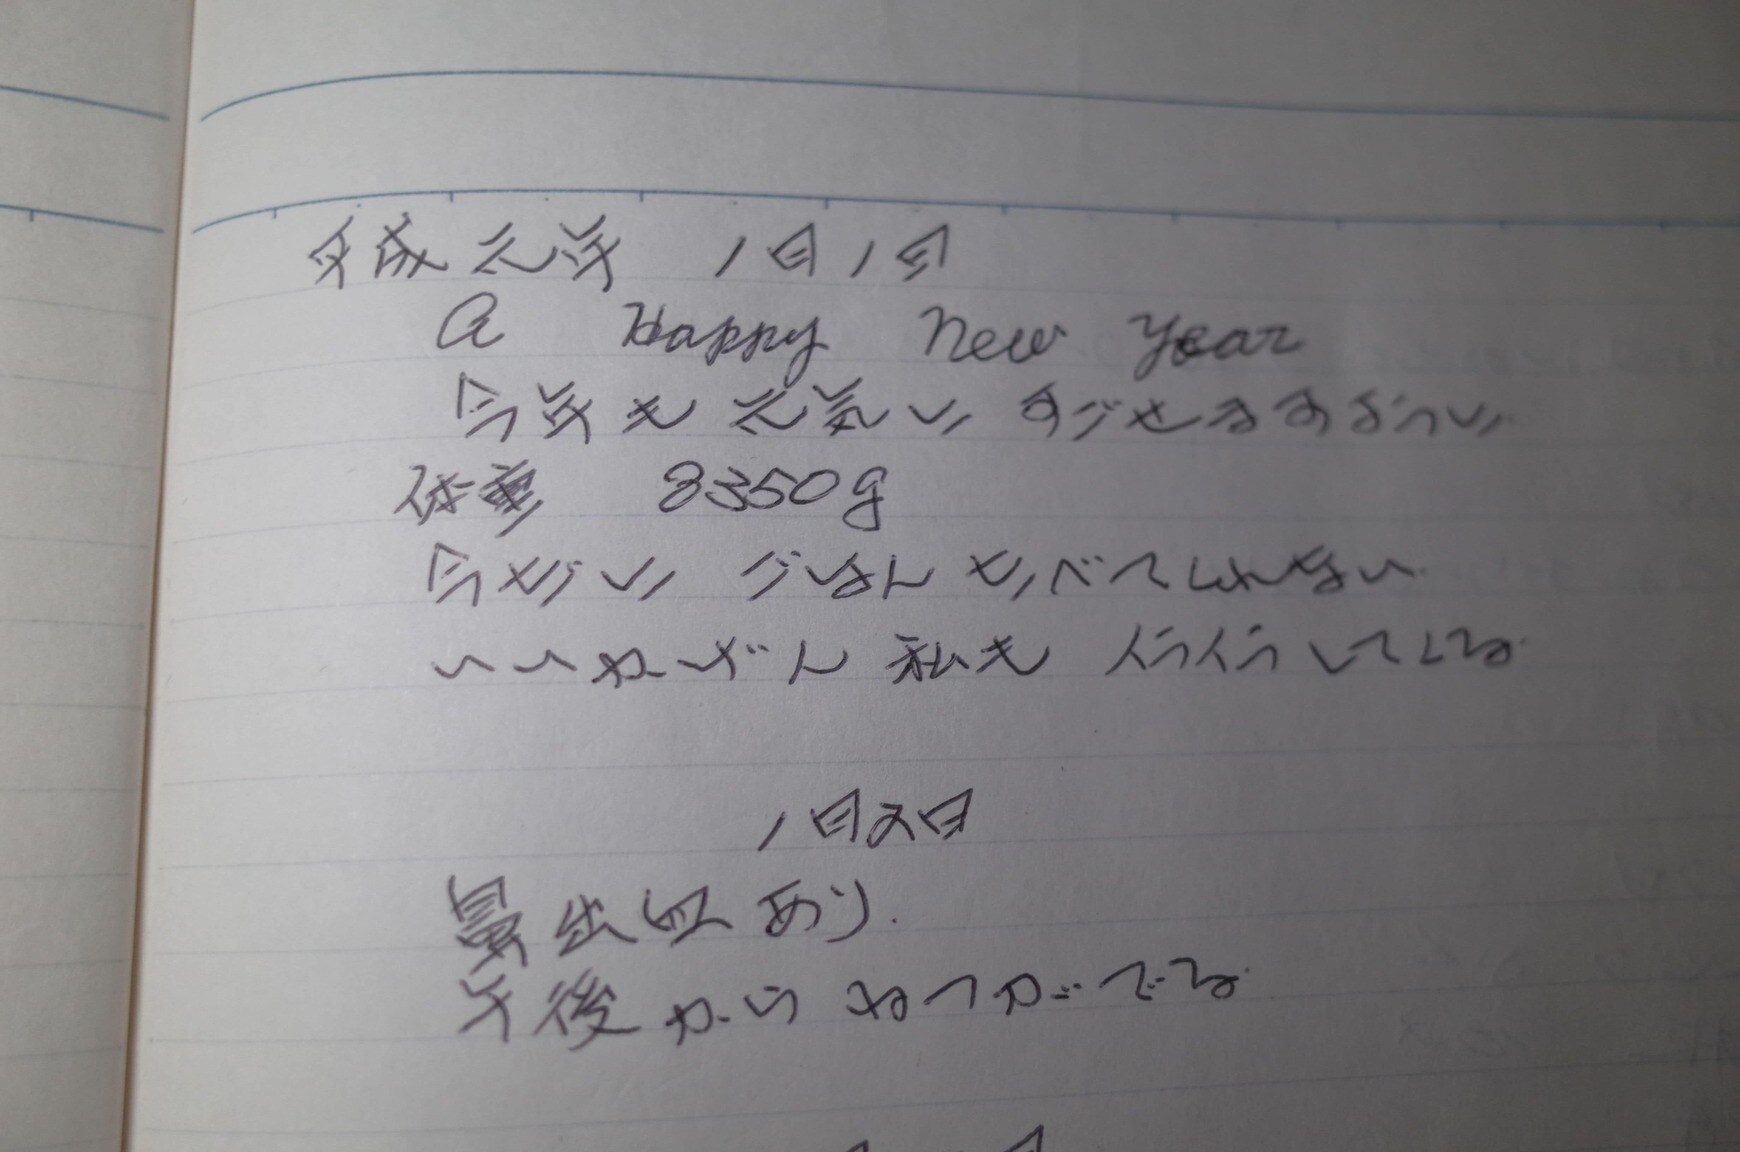 平成元年 1月1日
A Happy New Year
今年も元気に すごせますように
体重 8350g
今だに ごはん たべてくれない
いいかげん 私も イライラしてくる
1月2日
鼻出血あり.
午後から ねつがでる